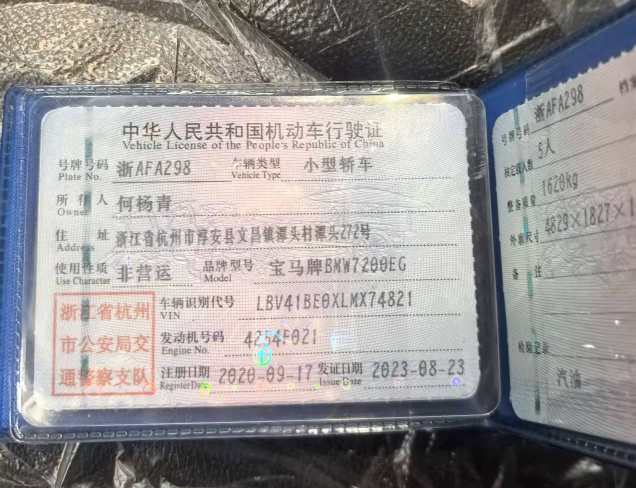 中华人民共和国机动车行驶证
Vehicle License of the People's Republic of China
号牌号码 浙AFA298 车辆类型 小型轿车
Plate No. Vehicle Type
所有人 何杨青
Owner
住址 浙江省杭州市淳安县文昌镇潭头村潭头272号
Address
使用性质 非营运 品牌型号 宝马牌BMW7200EG
Use Character Model
浙江省杭州
市公安局交
通警察支队
车辆识别代号 LBV41BE0XLMX74821
VIN
发动机号码 4254F021
Engine No.
注册日期 2020-09-17 发证日期 2023-08-23
Register Date Issue Date
号牌号码 浙AFA298 档案
核定载人数 5人
整备质量 1620kg
外廓尺寸 4829×1827×1
备注
检验记录
汽油